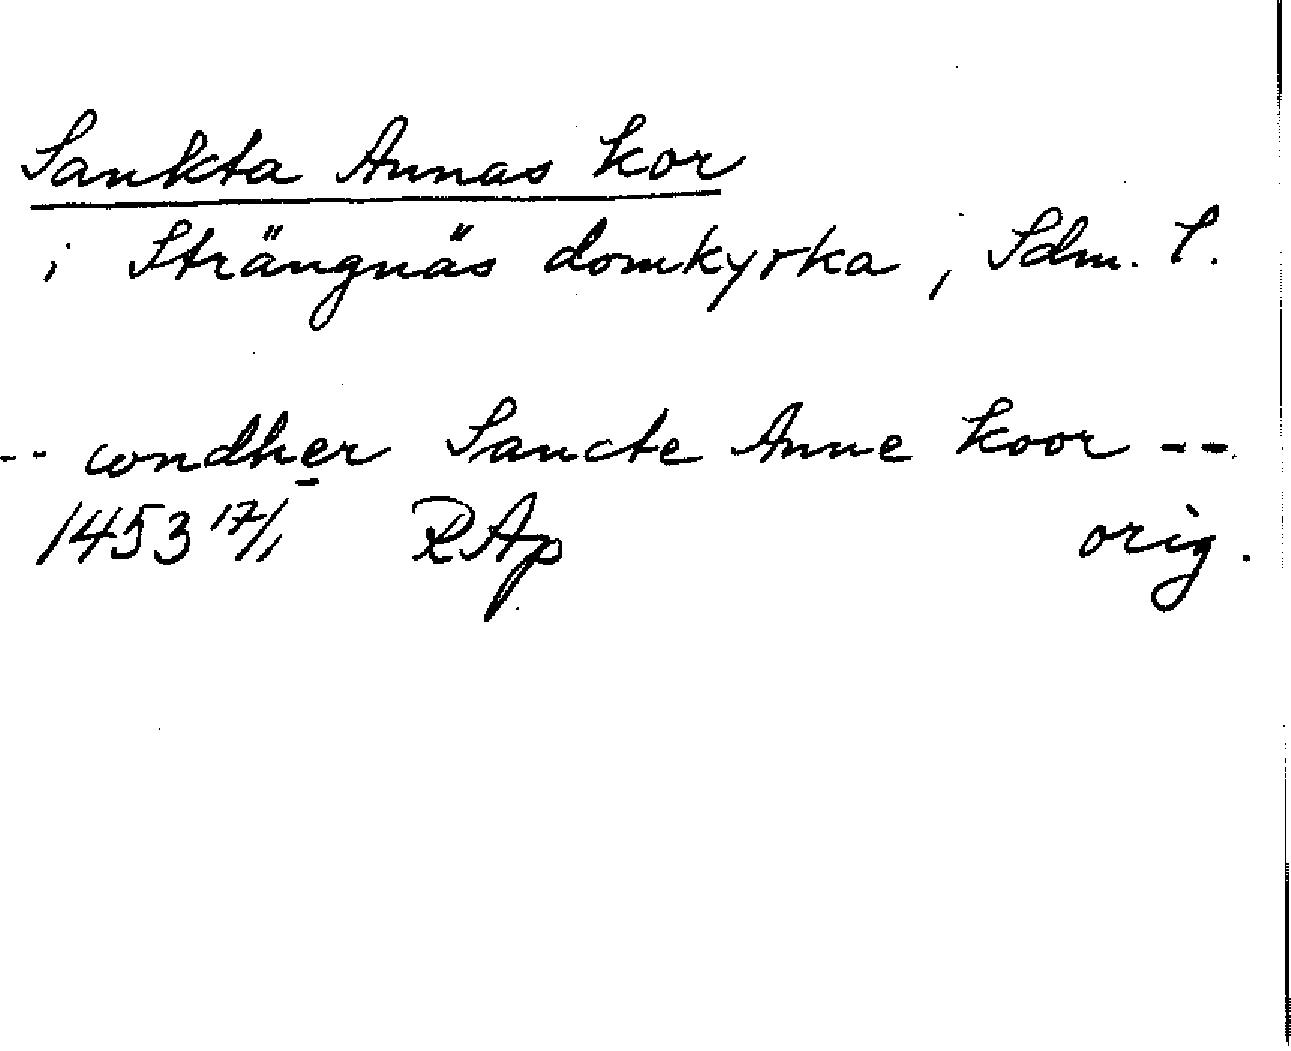 Sankta Annas kor
i Strängnäs domkyrka, Sdm. l.
-- wndher Sancte Anne koor --
1453 17/1 RAp orig.